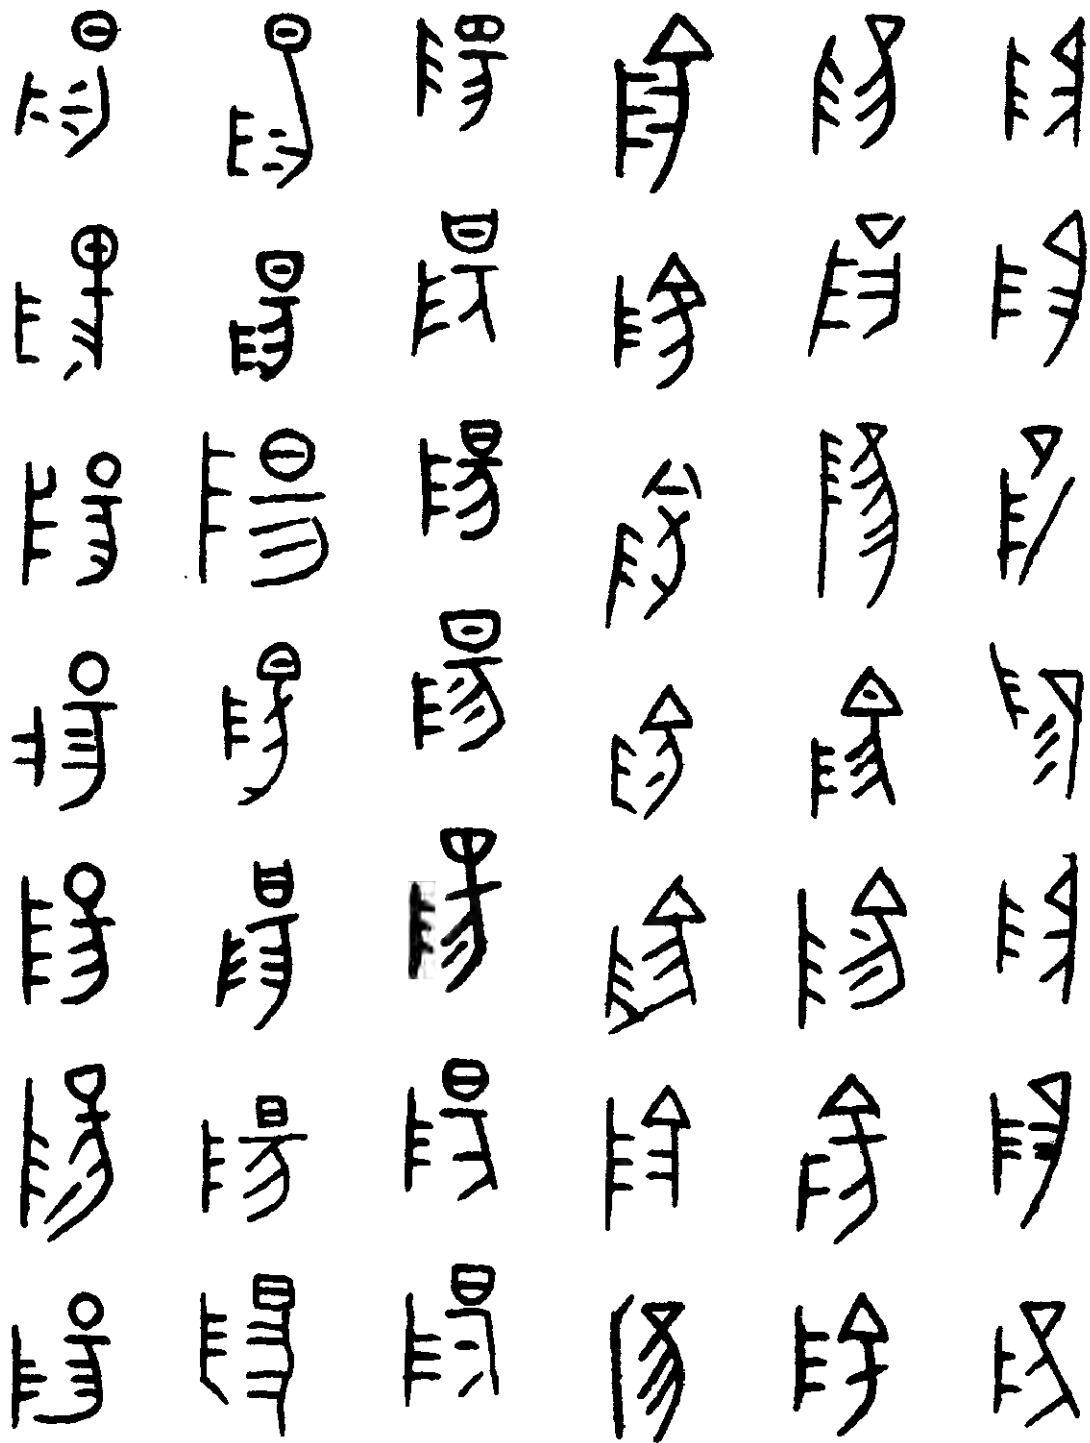 陽 陽 陽 陽 陽 陽
陽 陽 陽 陽 陽 陽
陽 陽 陽 陽 陽 陽
陽 陽 陽 陽 陽 陽
陽 陽 陽 陽 陽 陽
陽 陽 陽 陽 陽 陽
陽 陽 陽 陽 陽 陽